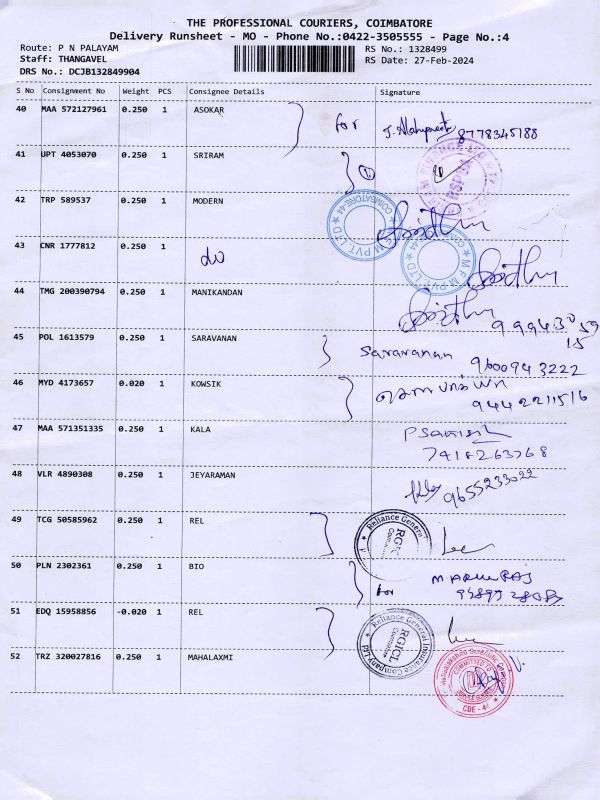 THE PROFESSIONAL COURIERS, COIMBATORE
Delivery Runsheet - MO - Phone No.:0422-3505555 - Page No.:4
Route: P N PALAYAM
RS No.: 1328499
Staff: THANGAVEL
RS Date: 27-Feb-2024
DRS No.: DCJB132849904
S No Consignment No Weight PCS Consignee Details Signature
40 MAA 572127961 0.250 1 ASOKAR for 8778345188
41 UPT 4053070 0.250 1 SRIRAM
42 TRP 589537 0.250 1 MODERN
COIMBATORE-44
43 CNR 1777812 0.250 1 do
M F M PVT. LTD
44 TMG 200390794 0.250 1 MANIKANDAN
99943 0 59
15
45 POL 1613579 0.250 1 SARAVANAN Saravanan 9600943222
46 MYD 4173657 0.020 1 KOWSIK
9442211516
47 MAA 571351335 0.250 1 KALA
7418263768
48 VLR 4890308 0.250 1 JEYARAMAN 9655233022
49 TCG 50585962 0.250 1 REL Reliance General RGICL
50 PLN 2302361 0.250 1 BIO for
51 EDQ 15958856 -0.020 1 REL Reliance General Insurance Company RGICL
52 TRZ 320027816 0.250 1 MAHALAXMI
COMMITTED TO
CBE - 44